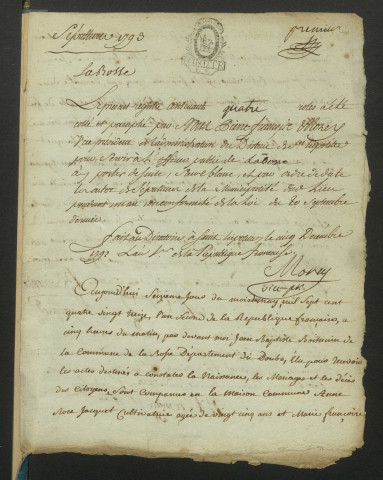 Sepulture 1793
premier
La Rosse
Le present registre contenant quatre roles a été
cotté et paraphé par Nous Pierre françois Morey
Vice président de l'administration du District de St hypolite
pour servir à l'officier public de La Rosse
à y porter de suite, sans blanc, et par ordre de date
les actes de sépulture de la municipalité dud. lieu
pendant un an en conformité de la loi du 20 Septembre
dernier.
fait au Directoire, à Saint hypolite, le cinq Décembre
1792 L'an 1er de la République française.
Morey
vice-pt
Aujourd'hui Seizieme jours du mois de may mil Sept cent
quatre vingt treize, l'an Second de la République française, a
cinq heures du matin, par devant moi Jean Baptiste
la Commune de la Rosse Département du Doubs, Elu pour recevoir
les actes destinés a constater la Naissance, les Mariages et les décès
des Citoyens, Sont Comparus en la Maison Commune Anne
Rose Jacquet Cultivatrice agée de vingt cinq ans et Marie françoise